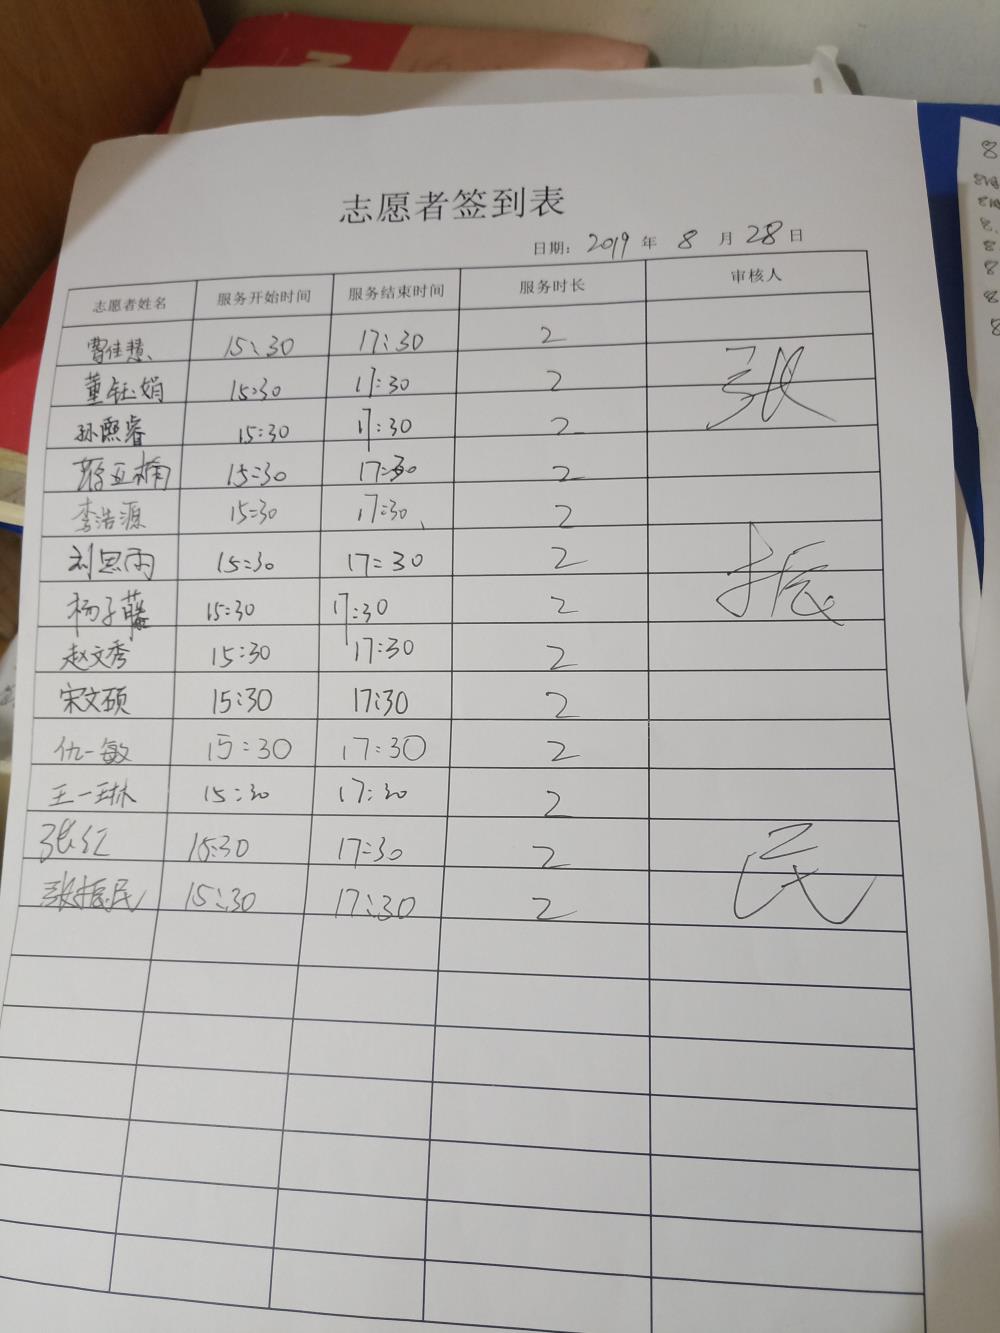 志愿者签到表
日期: 2019 年 8 月 28 日
志愿者姓名 服务开始时间 服务结束时间 服务时长 审核人
曹佳慧 15:30 17:30 2
董钰娟 15:30 17:30 2
张
孙熙睿 15:30 17:30 2
亚楠 15:30 17:30 2
李浩源 15:30 17:30 2
刘思雨 15:30 17:30 2
振
杨子藤 15:30 17:30 2
赵文秀 15:30 17:30 2
宋文硕 15:30 17:30 2
仇一敏 15:30 17:30 2
王一琳 15:30 17:30 2
张红 15:30 17:30 2
民
张振民 15:30 17:30 2